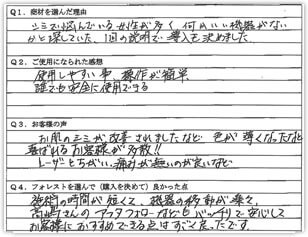 Q1．商材を選んだ理由
シミで悩んでいる女性が多く、何かいい機器がない
かと探していた、1回の説明で導入を決めました。
Q2．ご使用になられた感想
使用しやすい事、操作が簡単
誰でも安全に使用できる
Q3．お客様の声
お肌のシミが改善されましたなど 色が薄くなったなど
喜ばれるお客様が多数!!
レーザーとちがい、痛みが無いのが良いなど
Q4．フォレストを選んで（購入を決めて）良かった点
施術の時間が短くて、機器の移動が楽々、
さんのアフタフォローなどもバッチリで安心して
お客様におすすめできる点はすごく良かったです。